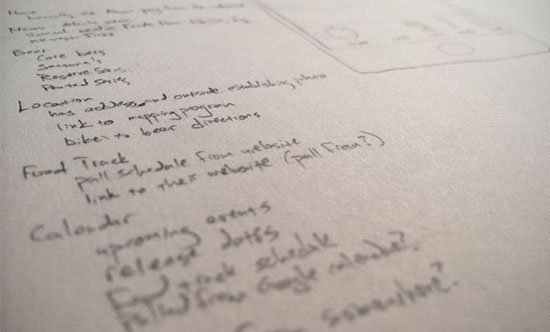 News
Social media feeds from
Beer
Core beers
Seasonals
Reserve Series
Painted Series
Location
has address and outside establishing photo
link to mapping program
bike to beer directions
Food Truck
pull schedule from website
link to their website (pull from?)
Calendar
upcoming events
release dates
Food truck schedule
Pulled from Google calendar?
somewhere?